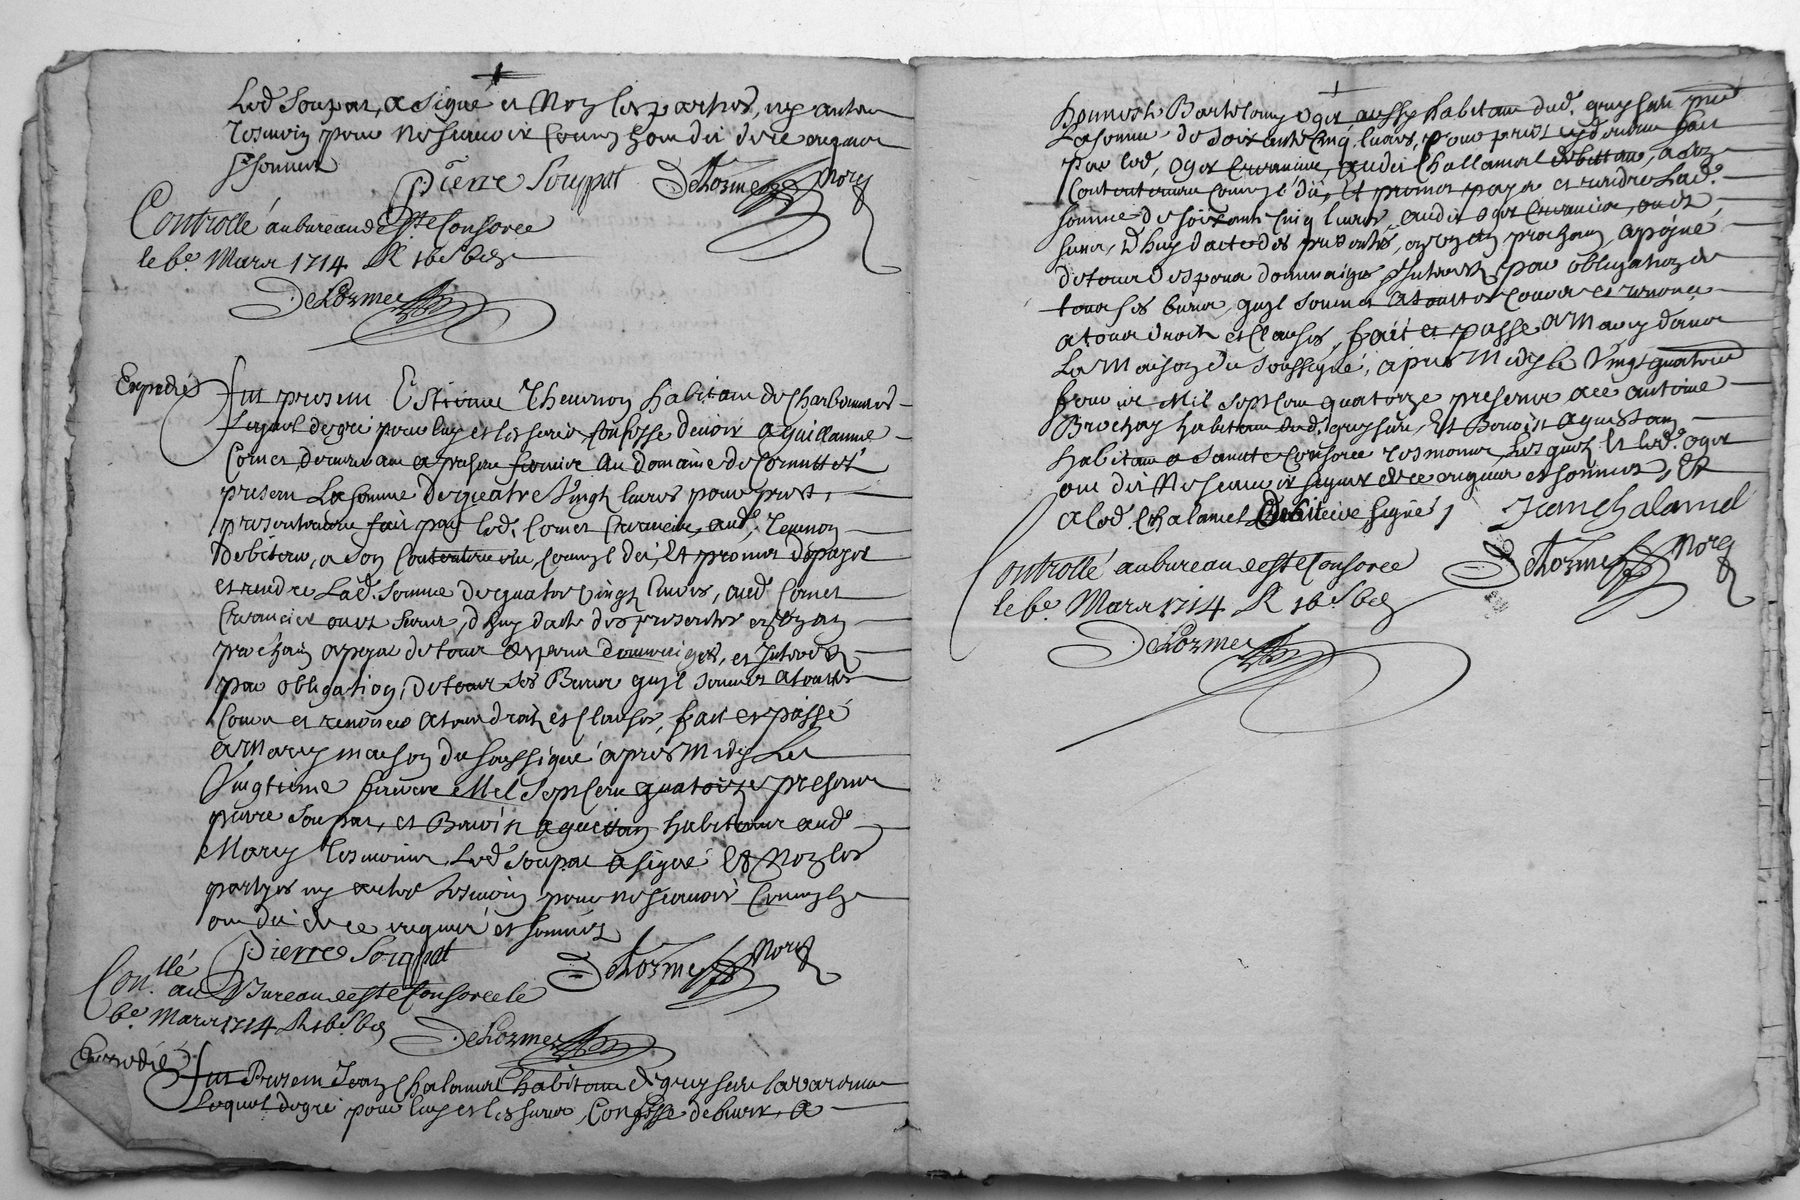 Led. Souppat, a signé et Non les parties, ny autre
tesmoin pour ne scavoir comm'ilz ont dit de ce enquis
et sommés
Pierre Souppat Delorme Nore
Controllé au bureau de Ste Consorce
le 6e. Mars 1714 R
Delorme
Expedié
fut present Estienne Thevenon habitant de Charbonnieres
Lequel de gré pour luy et les siens, confesse devoir a Guillaume
Cornet demeurant a present fermier au domaine de
present La somme de quatre Vingt livres pour prest,
presentement fait par led. Cornet creancier, aud. Tevenon
debiteur, a son contentement, comm'il dit, Et promet de payer
et rendre Lad. somme de quatre vingt livres, aud Cornet
Creancier ou es siens, d'huy datte des presentes en un an
prochain a peyne de tous despens dommaiges, et Interest
par obligation, de tous ses Biens qu'il soumet a toutes
Cours et renonce a tous droitz et clauses, fait et passé
a Marcy maison du soussigné apres Midy Le
Vingtieme fevrier Mil sept cent quatorze presens
pierre Soupat, et Benoist habitans aud.
Marcy tesmoins, Led. Soupat a signé Et Non les
partyes ny autre tesmoin pour ne scavoir comm'ilz
ont dit de ce enquis et sommés
Pierre Souppat Delorme Nore
Con.llé au Bureau de Ste Consorce le
6e Mars 1714 R
Delorme
Expedié
fut Present Jean Chalamel habitant de Greysieu la varenne
Lequel de gré pour luy et les siens, Confesse debvoir, a
honneste Bartelemy Oger aussy habitant dud. Greysieu
La somme de soixante Cinq livres, pour prest cejourd'huy fait
par led. Oger Creancier, audit Challamel debitteur, a son
Contentement comm'il dit, Et promet payer et rendre Lad.
somme de soixante Cinq livres, audit Oger Creancier, ou es
siens, d'huy datte des presentes, en un an prochain a peyne
de tous despens dommaiges Interest, par obligation de
tous ses biens, qu'il soumet a touttes Cours et renonce
a tous droitz et clauses, fait et passé a Marcy dans
La Maison du soussigné, apres Midy le Vingt quatrieme
fevrier Mil sept cent quatorze presens a ce antoine
Brochay habitant dud. greysieu, Et Benoist
habitant a Saincte Consorce tesmoins Lesquelz et led. Oger
ont dit Ne scavoir signer de ce enquis et sommés, Et
a led. Chalamel Debiteur signé,
Jean Chalamel
Delorme Nore
Controllé au bureau de Ste Consorce
le 6e. Mars 1714 R
Delorme